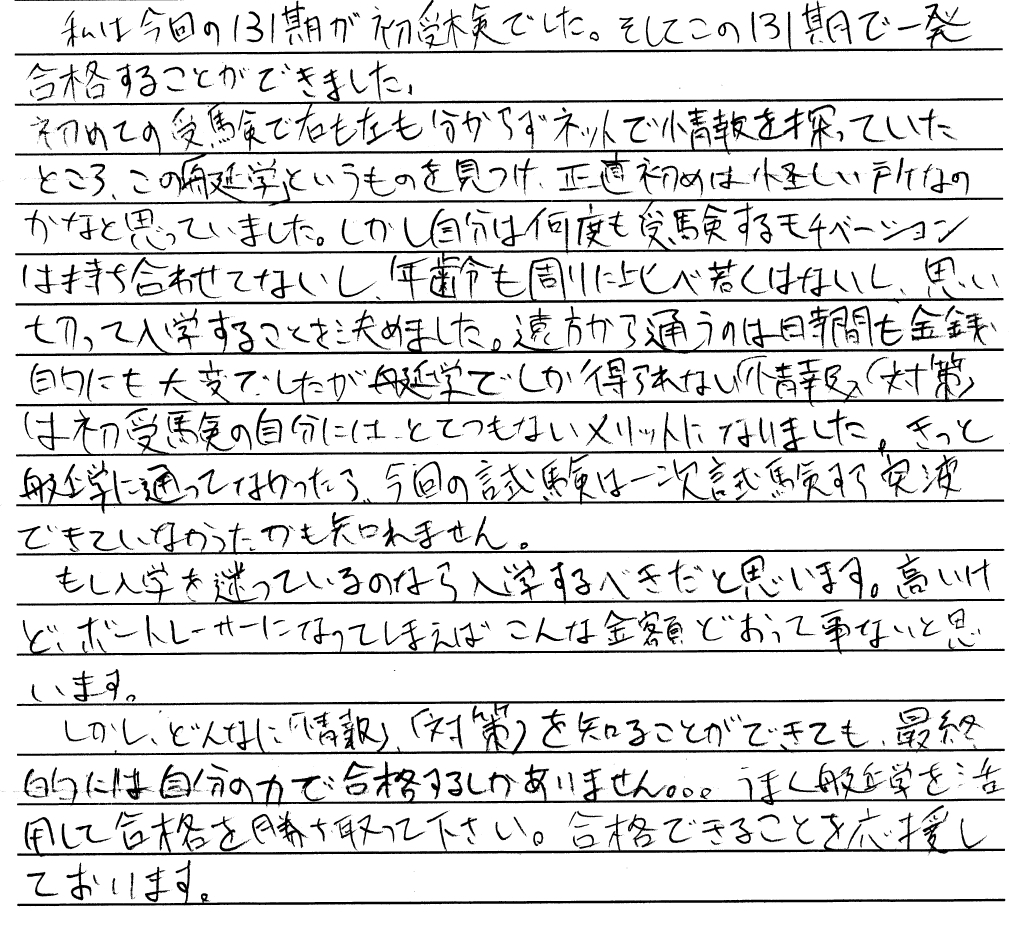 私は今回の131期が初受検でした。そしてこの131期で一発
合格することができました。
初めての受験で右も左も分からずネットで情報を探っていた
ところ、この「艇学」というものを見つけ、正直初めは怪しい所なの
かなと思っていました。しかし自分は何度も受験するモチベーション
は持ち合わせてないし、年齢も周りに比べ若くはないし、思い
切って入学することを決めました。遠方から通うのは時間も金銭
的にも大変でしたが艇学でしか得られない「情報」、「対策」
は初受験の自分には、とてつもないメリットになりました。きっと
艇学に通ってなかったら、今回の試験は一次試験すら突波
できていなかったかも知れません。
もし入学を迷っているのなら入学するべきだと思います。高いけ
ど、ボートレーサーになってしまえばこんな金額どおって事ないと思
います。
しかし、どんなに「情報」、「対策」を知ることができても、最終
的には自分の力で合格するしかありません。。。うまく艇学を活
用して合格を勝ち取って下さい。合格できることを応援し
ております。